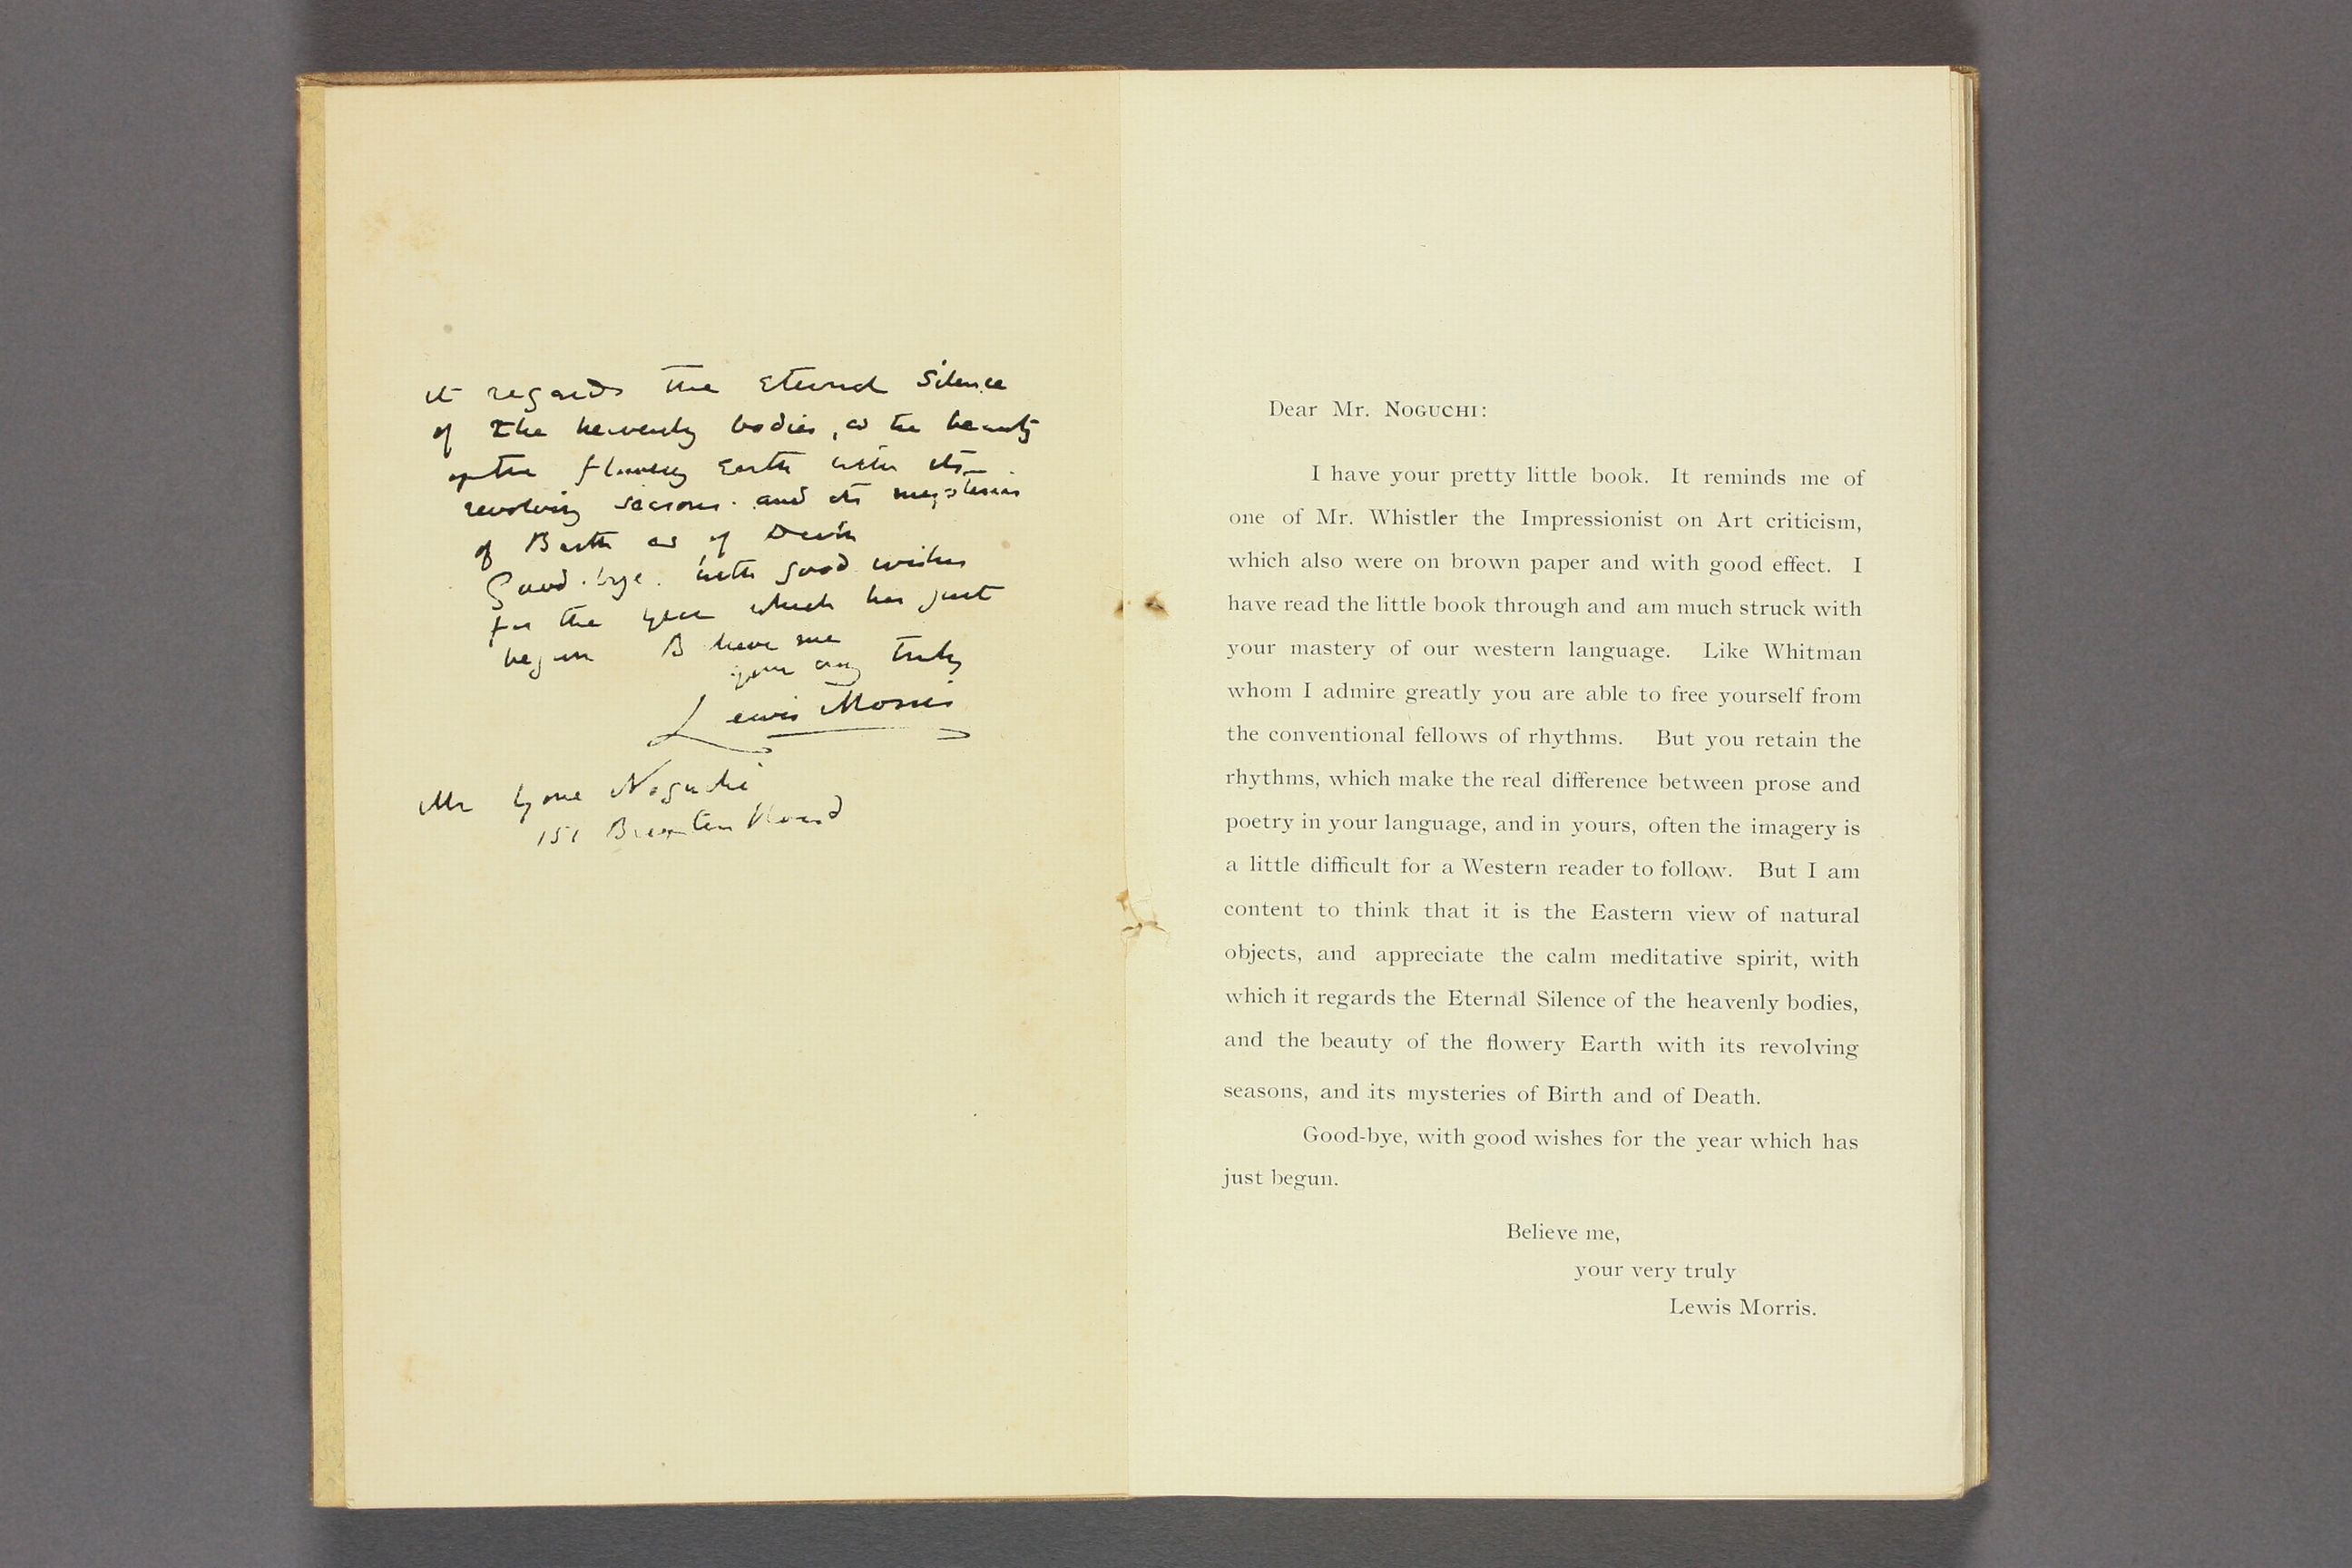 it regards the Eternal Silence
of the heavenly bodies, as the beauty
of the flowery Earth with its
revolving seasons. and its mysteries
of Birth as of Death
Good-bye. with good wishes
for the year which has just
begun Believe me
your very truly
Lewis Morris
Mr Yone Noguchi
151 Brixton Road
Dear Mr. NOGUCHI:
I have your pretty little book. It reminds me of
one of Mr. Whistler the Impressionist on Art criticism,
which also were on brown paper and with good effect. I
have read the little book through and am much struck with
your mastery of our western language. Like Whitman
whom I admire greatly you are able to free yourself from
the conventional fellows of rhythms. But you retain the
rhythms, which make the real difference between prose and
poetry in your language, and in yours, often the imagery is
a little difficult for a Western reader to follow. But I am
content to think that it is the Eastern view of natural
objects, and appreciate the calm meditative spirit, with
which it regards the Eternal Silence of the heavenly bodies,
and the beauty of the flowery Earth with its revolving
seasons, and its mysteries of Birth and of Death.
Good-bye, with good wishes for the year which has
just begun.
Believe me,
your very truly
Lewis Morris.